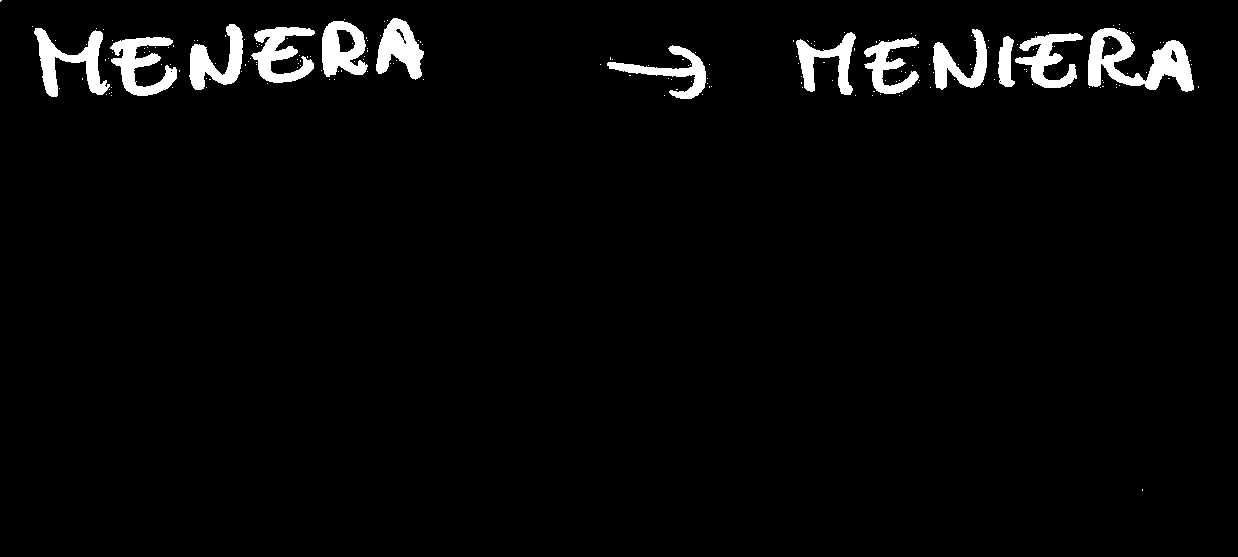 MENERA → MENIERA